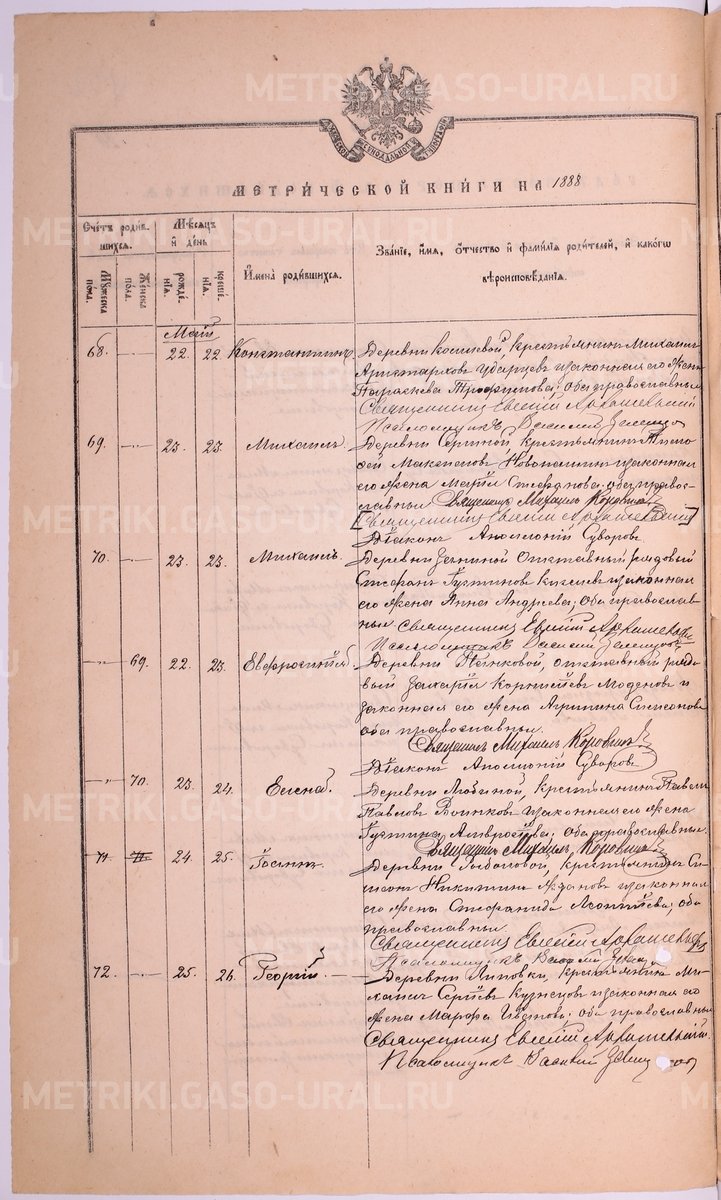 МОСКОВСКОЙ СѴНОДАЛЬНОЙ ТѴПОГРАФІИ
МЕТРИ́ЧЕСКОЙ КНИ́ГИ НА 1888
Сче́тъ роди́в-
шихся.
Мѣ́сяцъ
и҆ де́нь
И҆мена̀ роди́вшихся.
Зва́нїе, и҆́мѧ, ѻ҆́тчество и҆ фами́лїѧ роди́телей, и҆ како́гѡ
вѣроисповѣ́данїѧ.
Му́жеска
по́ла.
Же́нска
по́ла.
рожде́-
нїѧ.
креще́-
нїѧ.
Май
68. — 22 22 Константинъ Деревни крестьянинъ Михаилъ
Аристарховъ и законная его жена
Параскева Трофимова; оба православные
Священникъ Евгеній Архангельскій
Псаломщикъ Василій
69. — 23. 23. Михаилъ Деревни крестьянинъ Тимо-
фей и законная
его жена Марія Стефанова; оба правос-
лавные Священникъ Михаилъ Коровинъ
[Священникъ Евгеній Архангельскій]
Діаконъ Аполлоній Суворовъ
70. — 23. 23. Михаилъ. Деревни отставный рядовой
Стефанъ Іустиновъ и законная
его жена Анна Андреева, оба православ-
ные. Священникъ Евгеній Архангельскій
Псаломщикъ Василій
— 69. 22. 23. Евфросинія Деревни отставный рядо-
вый Захарія Корниліевъ и
законная его жена Агрипина Симеонова
оба православные.
Священникъ Михаилъ Коровинъ
Діаконъ Аполлоній Суворовъ
— 70. 23. 24. Елена. Деревни крестьянинъ Павелъ
Павловъ и законная его жена
Іустина Амвросіева; оба православные.
Священникъ Михаилъ Коровинъ
71 24. 25. Іоаннъ. Деревни крестьянинъ Си-
меонъ Никитинъ Ждановъ и законная
его жена Стефанида Леонтіева; оба
православные
Священникъ Евгеній Архангельскій
Псаломщикъ Василій
72. — 25. 26. Георгій — Деревни Липовки, крестьянинъ Ми-
хаилъ Сергіевъ Кузнецовъ и законная его
жена Марфа Иванова; оба православные
Священникъ Евгеній Архангельскій.
Псаломщикъ Василій
METRIKI.GASO-URAL.RU